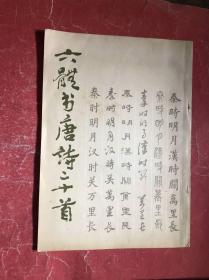 秦時明月漢時關萬里長
秦時明月漢時關萬里長
秦時明月漢時關萬里長
秦時明月漢時关萬里長
秦时明月汉时关万里长
六體书唐詩三十首